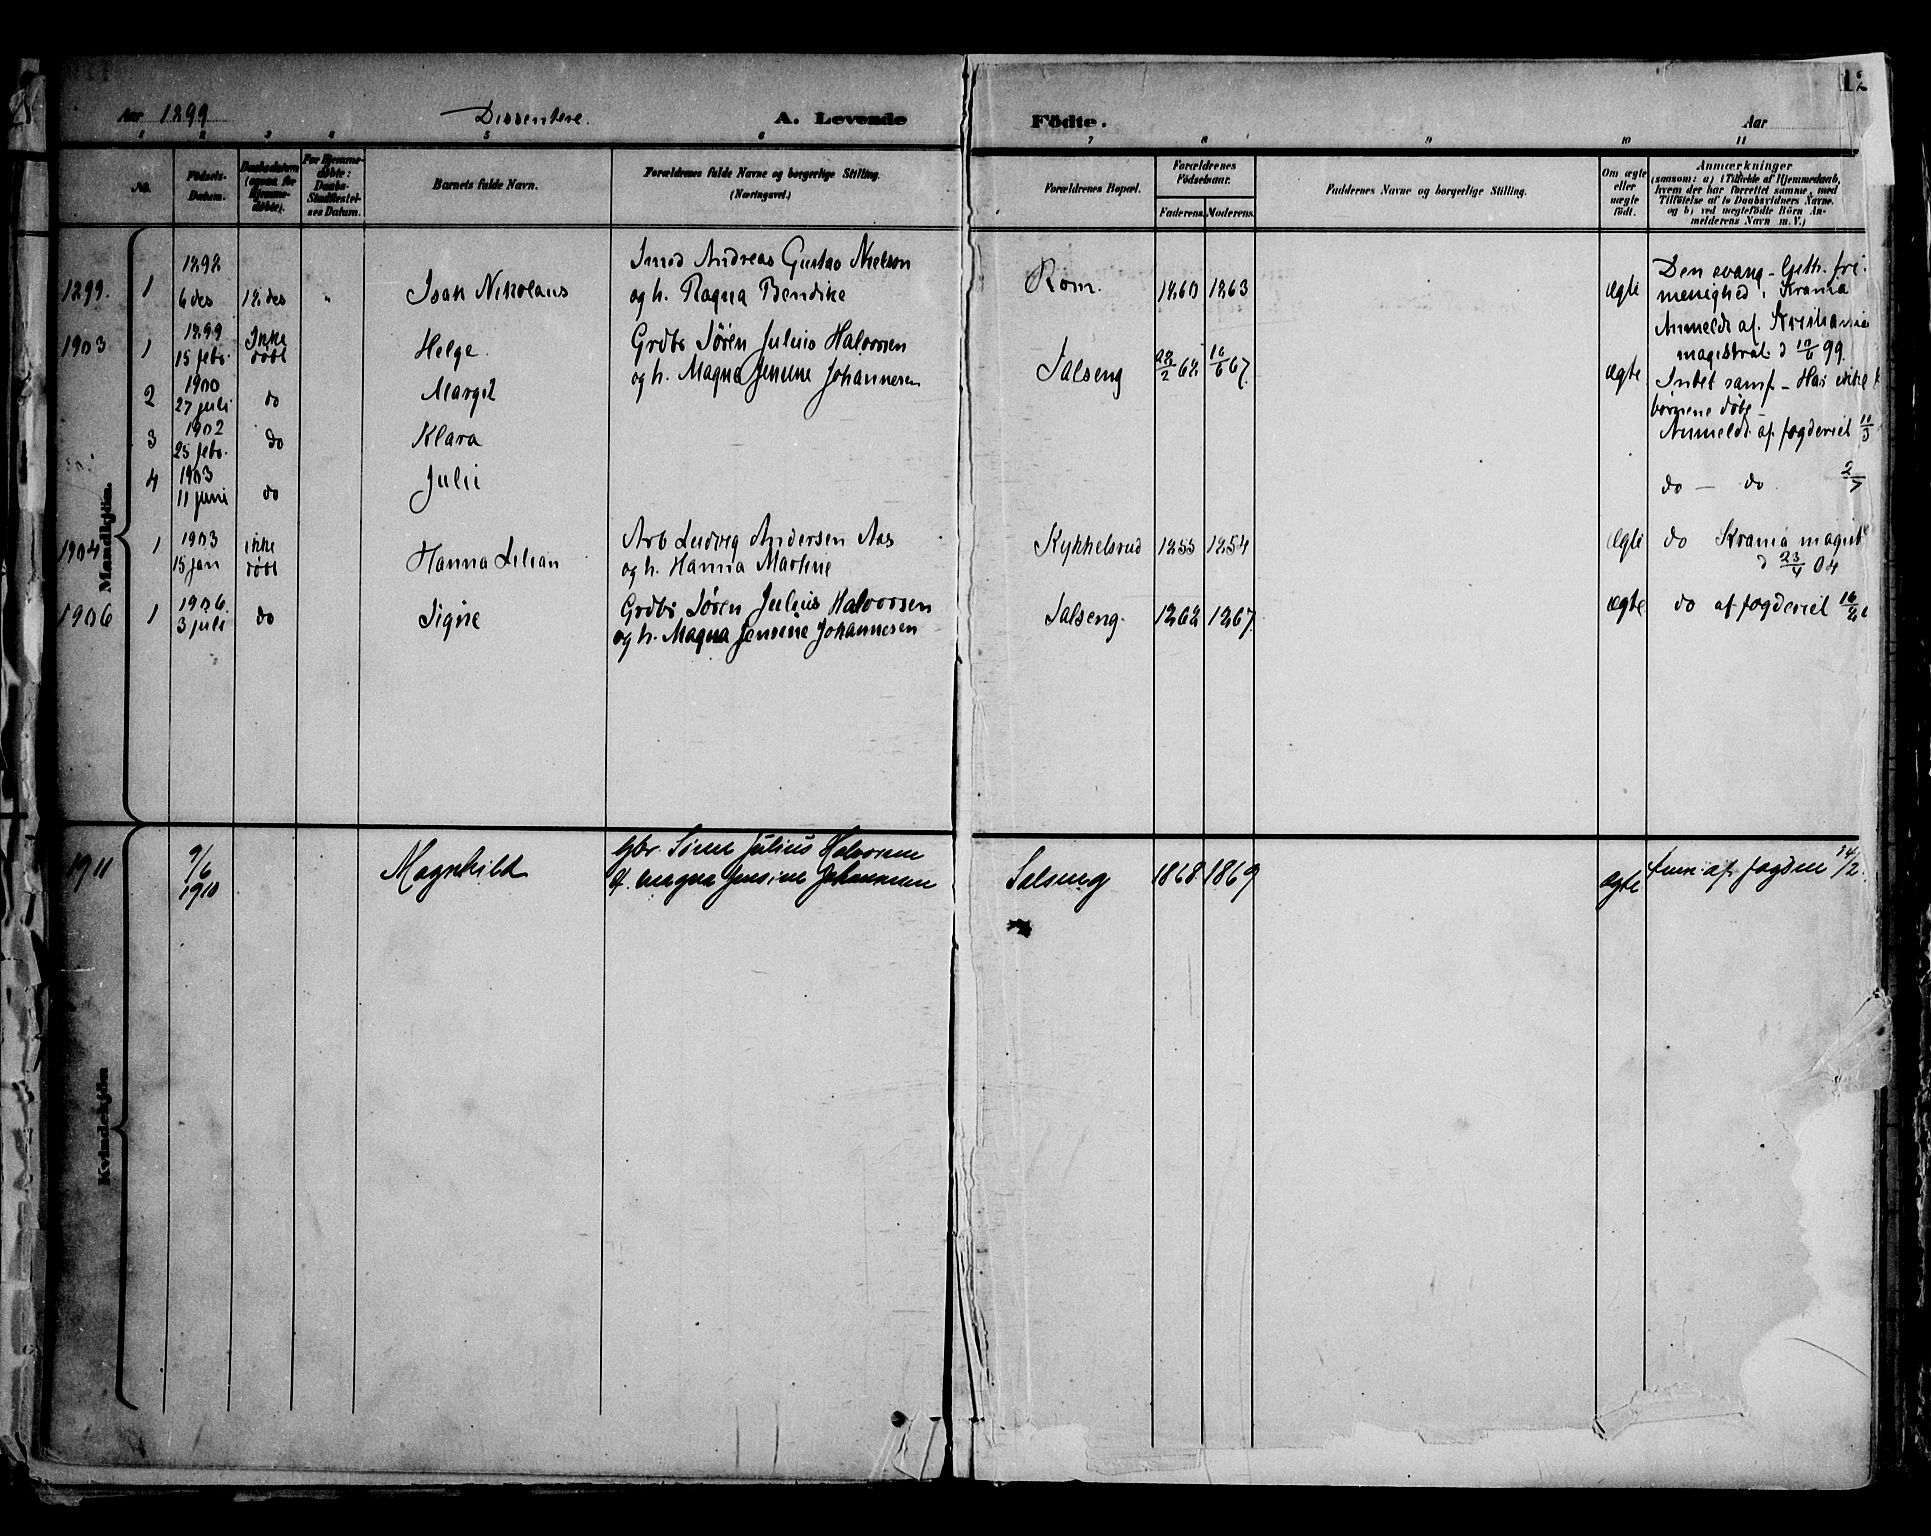 12
Aar 1899
Dissentere.
A. Levende
Födte.
Aar
1 2 3 4 5 6 7 8 9 10 11
No.
Födsels-
Datum.
Daabsdatum
(ogsaa for
Hjemme-
døbte).
For Hjemme-
døbte:
Daabs-
Stadfæstel-
ses Datum.
Barnets fulde Navn.
Forældrenes fulde Navne og borgerlige Stilling.
(Næringsvei.)
Forældrenes Bopæl.
Forældrenes
Födselsaar.
Faderens.
Moderens.
Faddernes Navne og borgerlige Stilling.
Om ægte
eller
uægte
født.
Anmærkninger
(saasom: a) i Tilfælde af Hjemmedaab,
hvem der har forrettet samme, med
Tilföielse af to Daabsvidners Navne.
og b) ved uegtefödte Börn An-
melderens Navn m. V.)
Mandkjön.
1899. 1 1898 6 des 18 des " Isak Nikolaus
Smed Andreas Gustav Nielsen
og h. Ragna Bendike
Rom. 1860 1863 Ægte
Den evang-luth. fri-
menighed i Krania
Anmeldt af Kristiania
magistrat d 10/6 99.
1903 1 1899 15 febr. Ikke døbt Helge.
Grdbr Søren Julius Halvorsen
og h. Magna Jensine Johannesen
Salseng 28/2 62 16/6 67. Ægte
Intet samf - Har ikke
børnene døbt -
Anmeldt af fogderiet 11/3
2 1900 27 juli do Margit
3 1902 25 febr. do Klara
4 1903 11 juni do Julii
do - do 2/7
1904 1 1903 15 jan ikke døbt Hanna Lilian
Arb Ludvig Andersen Aas
og h. Hanna Martine
Kykkelsrud 1855 1854 Ægte
do Krania magist
d 23/4 04
1906 1 1906. 3 juli do Signe
Grdbr Søren Julius Halvorsen
og h. Magna Jensine Johannesen
Salseng. 1862 1867. Ægte do af fogderiet
Kvindekjön
1911 9/6 1910 Magnhild
Gbr. Søren Julius Halvorsen
og Magna Jensine Johannesen
Salseng 1868 1869 Ægte af fogden 14/2.